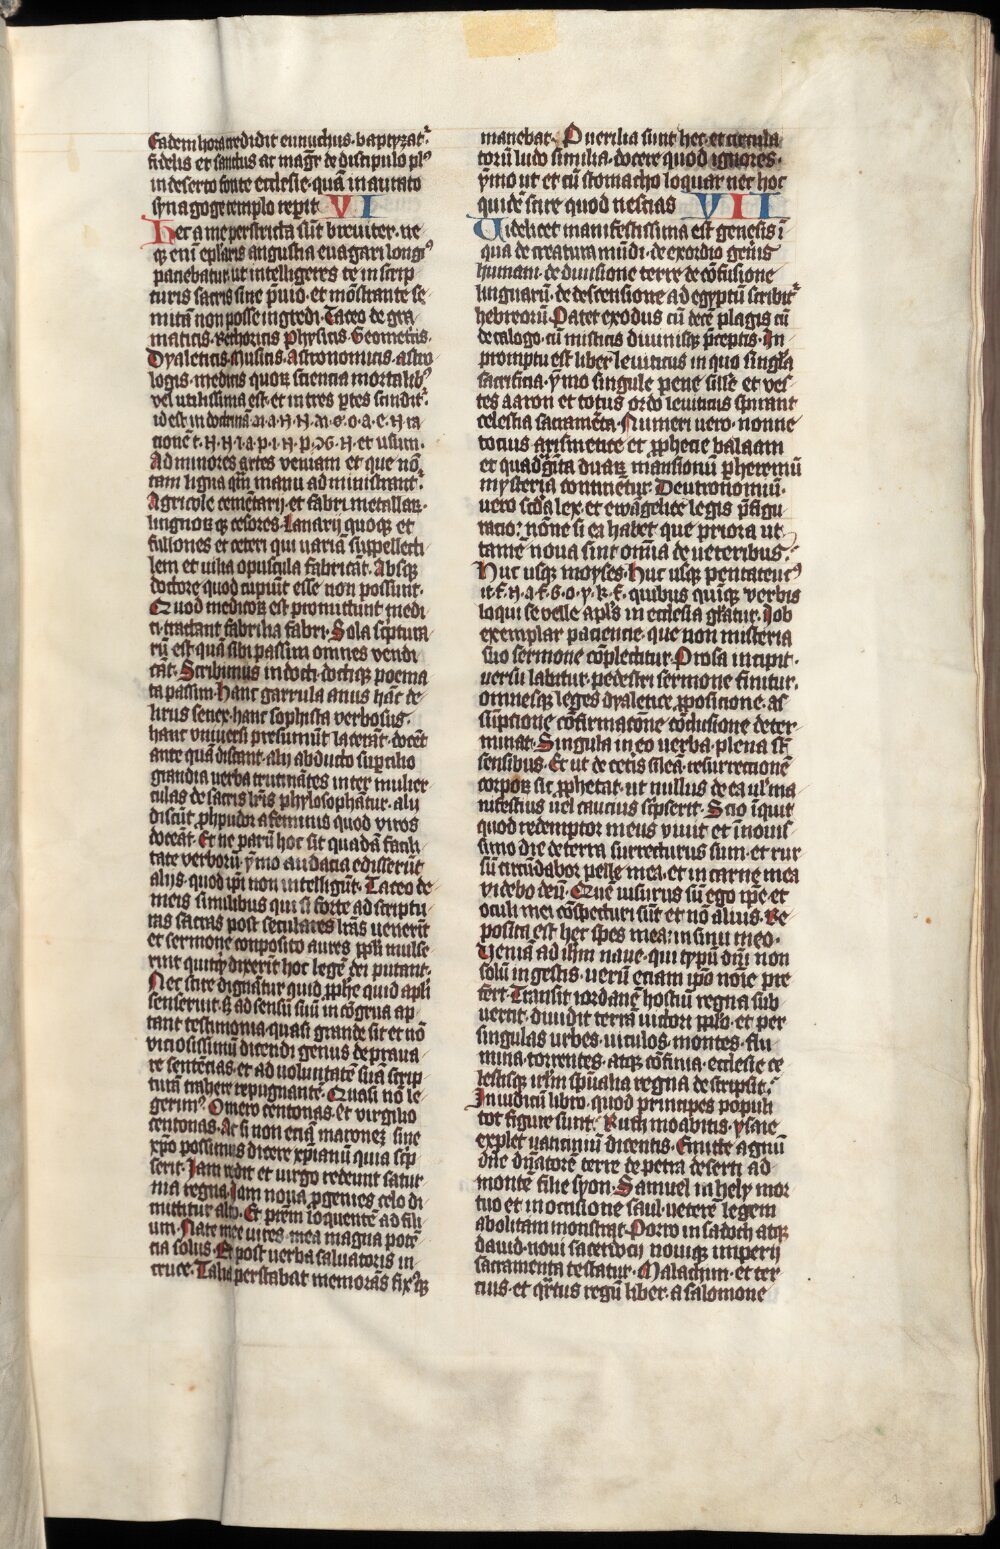 Eadem hora credidit eunuchus. baptyzat᷑
fidelis et sanctus ac mag̅r de discipulo plꝰ
in deserto fonte ecclesie. quā in aurato
synagoge templo rep̄it VI
Hec a me perstricta sūt breviter. ne
qꝫ eni̅ ep̄laris angustia euagari longiꝰ
paciebatur. ut intelligeres te in scrip
turis sacris sine p̄uio. et mōstrante se
mitā non posse ingredi. Taceo de gra
maticis. Rethoricis Physicis. Geometris.
Dyaleticis. Musicis. Astronomicis. astro
logis. medicis quoꝝ sciencia mortalibꝰ
vel utilissima est. et in tres ꝑtes scindit᷑.
id est in doctrinā
cionē et usum.
Ad minores artes veniam et que nō
tam ligna qm̄ manu administrant᷑.
Agricole cemētarij. et fabri metallaꝝ.
lingnoꝝ qꝫ cesores. Lanarij quoqꝫ et
fullones et ceteri qui uariā suppellecti
lem et uilia opuscula fabricāt. Absqꝫ
doctore quod cupiūt esse non possunt.
Quod medicoꝝ est promittunt medi
ci. tractant fabrilia fabri. Sola sc̄ptura
rū est quā sibi passim omnes vendi
cāt. Scribimus indocti. doctiqꝫ poema
ta passim. Hanc garrula anus hāc de
lirus senex. hanc sophista verbosus.
hanc vniuersi presumūt lacerāt. docēt
ante quā discant. alij abducto suꝑcilio
grandia uerba trutinātes inter mulier
culas de sacris lr̄is phylosophātur. alij
discūt ꝓhpudor a feminis quod viros
doceāt. Et ne parū hoc sit quadā facili
tate verborū. ymo audacia edisserūt
alijs. quod ip̄i non intelligūt. Taceo de
meis similibus qui si forte ad scriptu
ras sacras post seculares lr̄as uenerīt
et sermone composito aures pp̄li mulse
rint quitqͥd dixerīt hoc legē dei putant.
Nec scire dignātur quid ꝓphe quid apl̄i
senserint. sꝫ ad sensū suū incōgrua ap
tant testimonia. quasi grande sit et nō
viciosissimū dicendi genus deprava
re sentēcias. et ad uoluntatē suā scrip
turā trahere repugnantē. Quasi nō le
gerimꝰ. Omero centonas. Et virgilio
centonas. Ac si non eciā maroneꝫ sine
xp̄o possimus dicere xp̄ianū quia scp̄
serit. Iam redit et uirgo redeunt satur
nia regna. Iam noua ꝓgenies celo di
mittitur alto. Et pr̄em loquentē ad fili
um. Nate mee uires mea magna potē
cia solus. Et post uerba saluatoris in
cruce. Talia perstabat memorās fixꝰqꝫ
manebat. Puerilia sunt hec. et circula
torū ludo similia. docere quod ignores.
ymo ut et cū stomacho loquar nec hoc
quidē scire quod nescias VII
Uidelicet manifestissima est genesis ī
qua de creatura mūdi. de exordio gen̄is
humani. de diuisione terre de cōfusione
linguarū. de descensione ad egyptū scribit᷑
hebreorū. Patet exodus cū decē plagis cū
decalogo. cū misticis diuinisqꝫ p̄ceptis. In
promptu est liber leuiticus in quo singl̄a
sacrificia. ymo singule pene sill̄e et ves
tes aaron et totus ordo leuiticus spirant
celestia sacramēta. Numeri uero. nonne
tocius arismetice et ꝓphecie balaam
et quadͣgīta duaꝝ mansionū ꝑ heremū
mysteria continētur. Deutronomiū.
uero scd̄a lex. et ewāgelice legis p̄figu
racio: nōne si ea habet que priora ut
tamē noua sint om̄ia de ueteribus.
Huc usqꝫ moyses. Huc usqꝫ pentateucꝰ
quibus quīqꝫ verbis
loqui se velle apl̄s in ecclesia gl̄atur. Iob
exemplar paciencie. que non misteria
suo sermone cōplectitur. Prosa incipit.
versu labitur. pedestri sermone finitur.
omnesqꝫ leges dyaletice ꝓposicione. as
sūpcione cōfirmacōne cōclusione deter
minat. Singula in eo uerba plena sūt
sensibus. Et ut de cetis sileā. resurrectionē
corpoꝝ sic ꝓphetat. ut nullus de ea ul̄ ma
nifestius uel caucius sc̄pserit. Scio īquit
quod redemptor meus viuit et ī nouis
simo die de terra surrecturus sum. et rur
sū circūdabor pelle mea. et in carne mea
videbo deū. Quē uisurus sū ego ip̄e. et
oculi mei cōspecturi sūt et nō alius. Re
posita est hec spes mea: in sinu meo.
Ueniā ad ih̄m naue. qui typū dn̄i non
solū in gestis. uerū eciam ip̄o noīe pre
fert. Transit iordanē hostiū regna sub
uertit. diuidit terrā uictori pp̄lo. et per
singulas urbes. uiculos. montes. flu
mina. torrentes. atqꝫ cōfinia. ecclesie ce
lestisqꝫ irl̄m sp̄ualia regna descripsit.
In iudicū libro. quod principes populi
tot figure sunt. Ruth moabitis. ysaie
explet uaticiniū dicentis. Emitte agnū
dn̄e dn̄atorē terre de petra deserti ad
montē filie syon. Samuel in hely mor
tuo et in occisione saul. ueterē legem
abolitam monstrat. Porro in sadoch atqꝫ
dauid. noui sacerdocij nouiqꝫ imperij
sacramenta testatur. Malachim. et ter
cius. et qͣrtus regū liber. a salomone